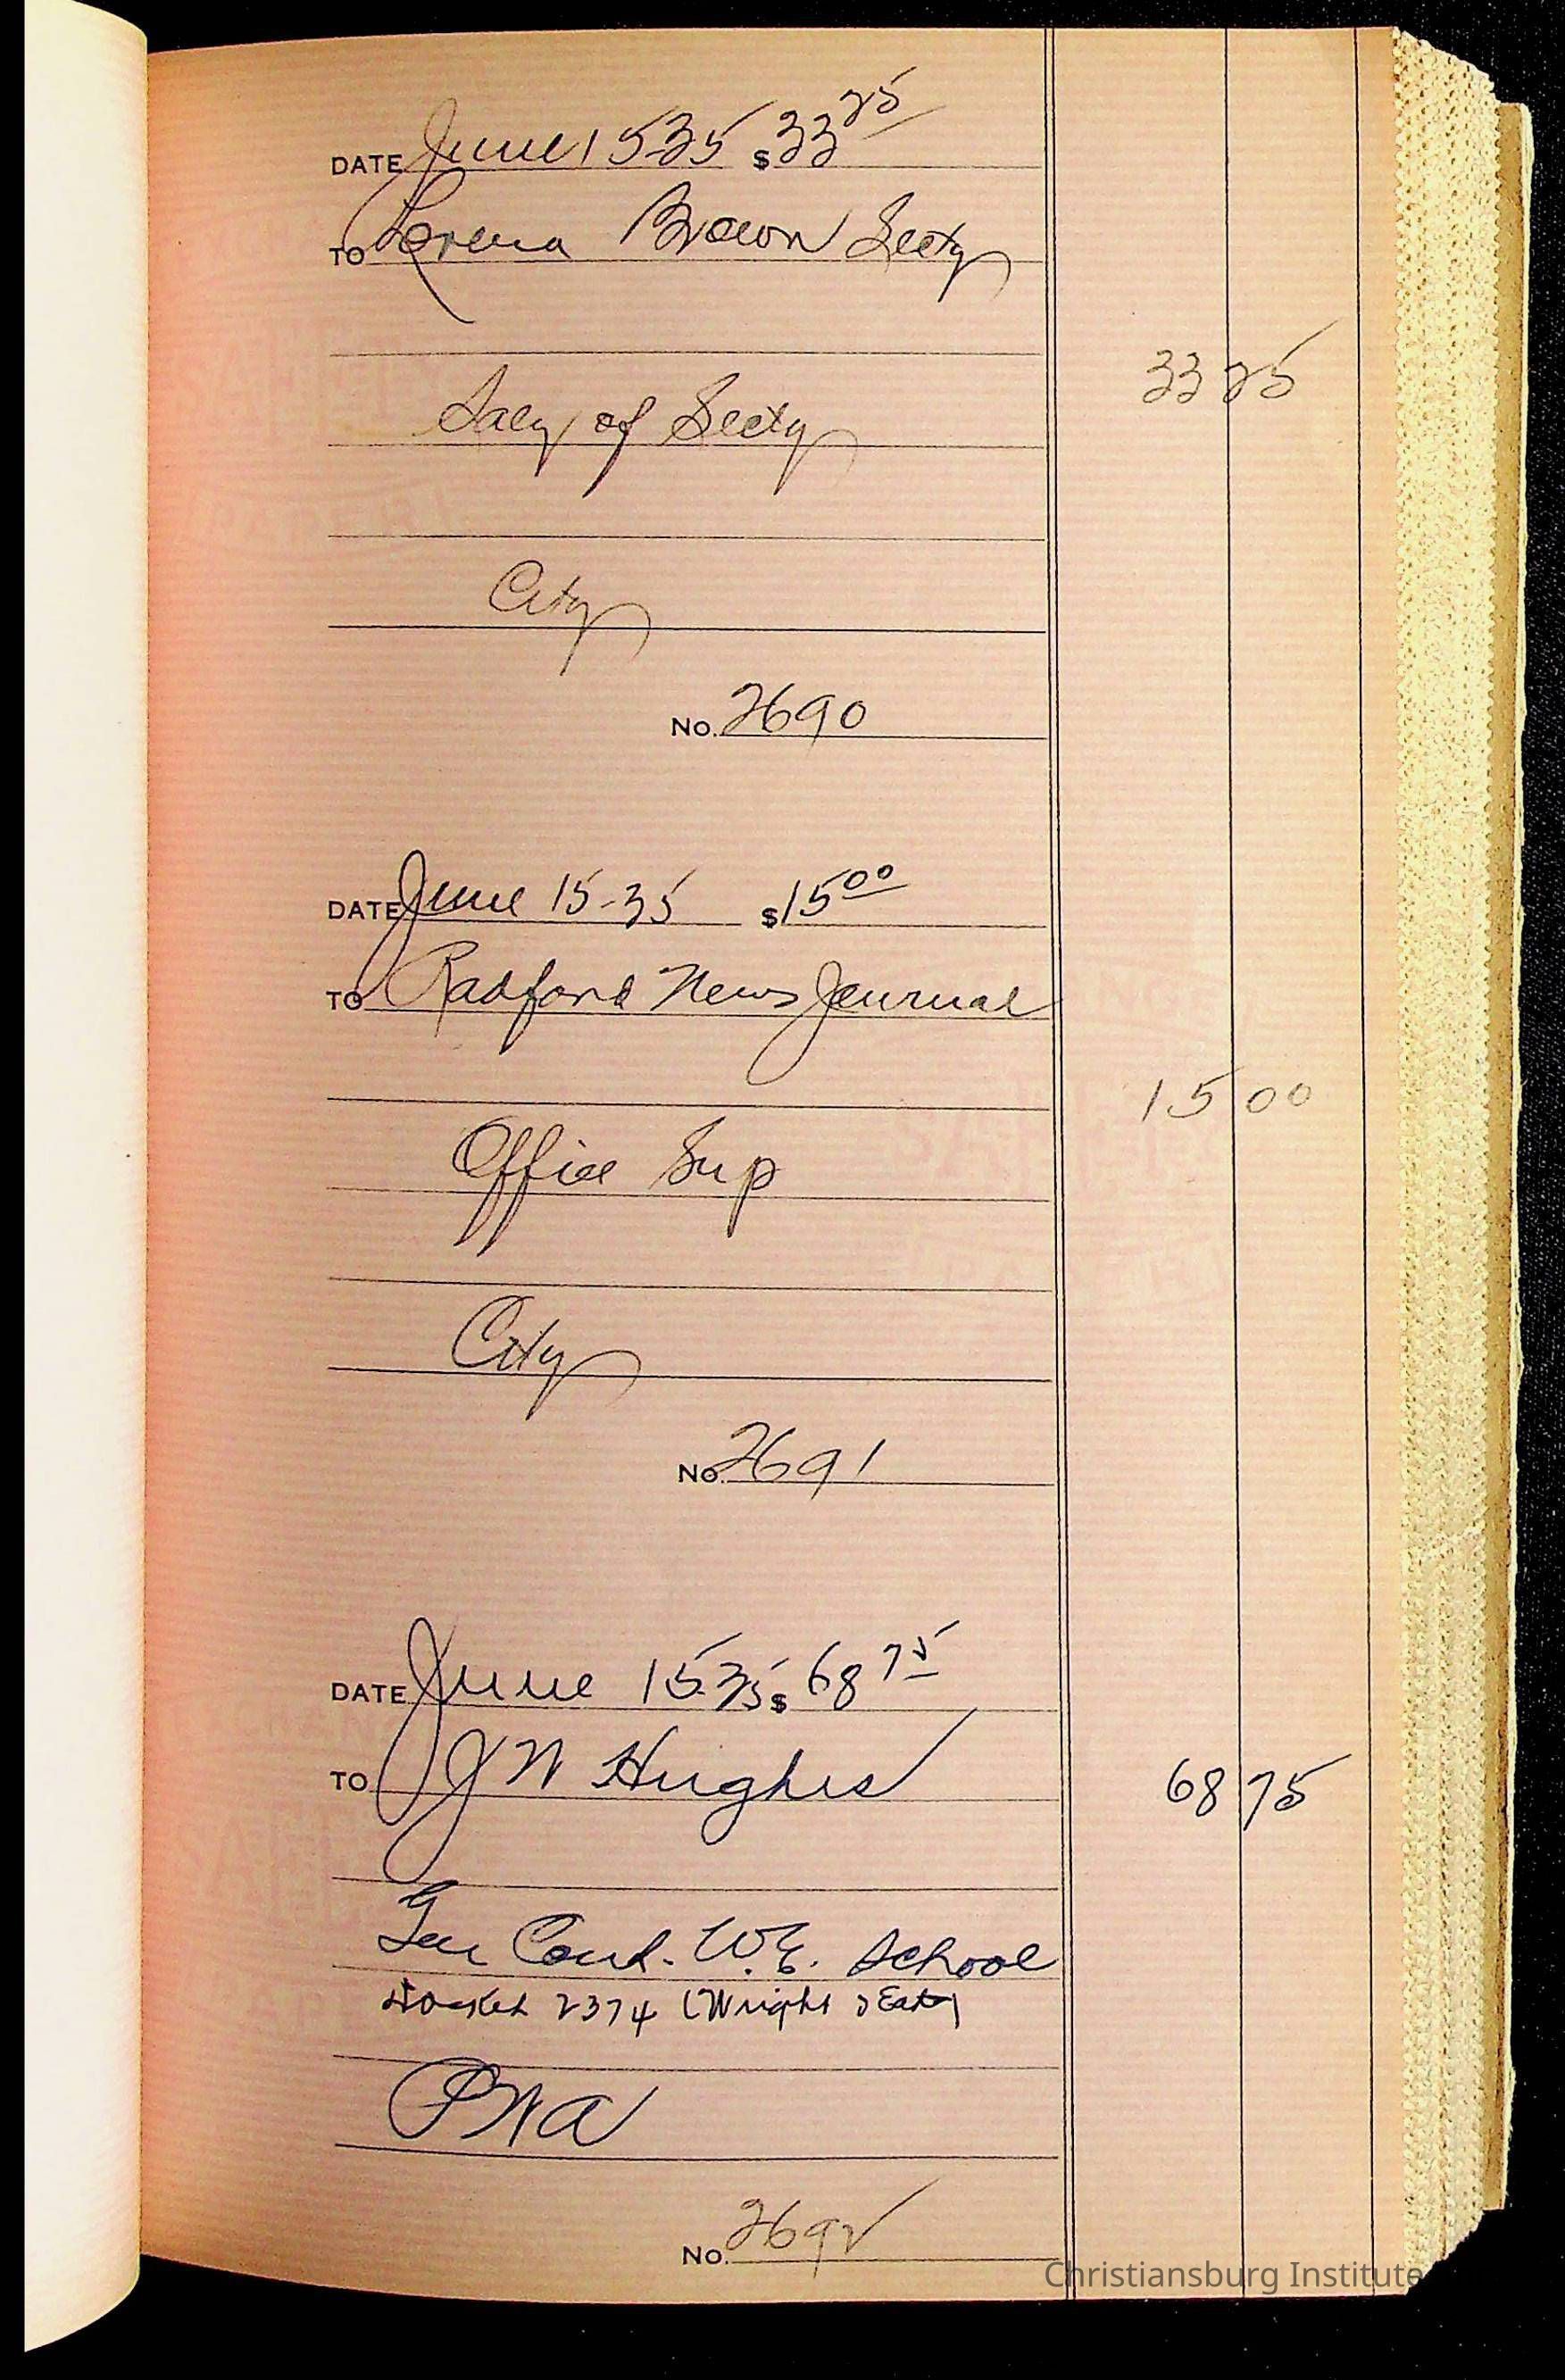 DATE June 15-35 $33 25
TO Lorena Brown Secty
33 25
Saly of Secty
City
No. 2690
DATE June 15-35 $15 00
TO Radford News Journal
15 00
Office Sup
City
No. 2691
DATE June 15-35 $68 75
TO J W Hughes
68 75
Gen Cont. W.E. School
Docket 2374 (Wright & East)
PWA
No. 2692
Christiansburg Institute